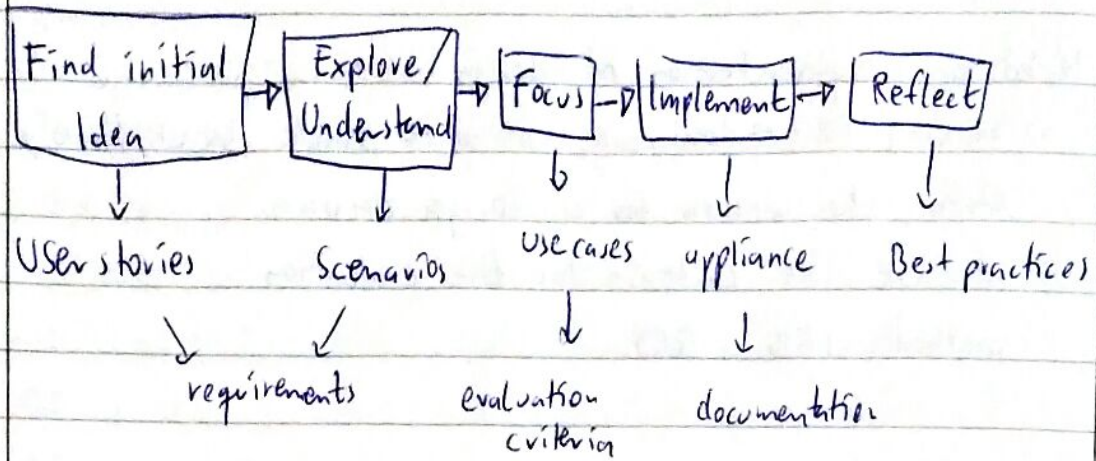 Find initial
Idea
Explore/
Understand
Focus
Implement
Reflect
User stories
Scenarios
use cases
appliance
Best practices
requirements
evaluation
criteria
documentation